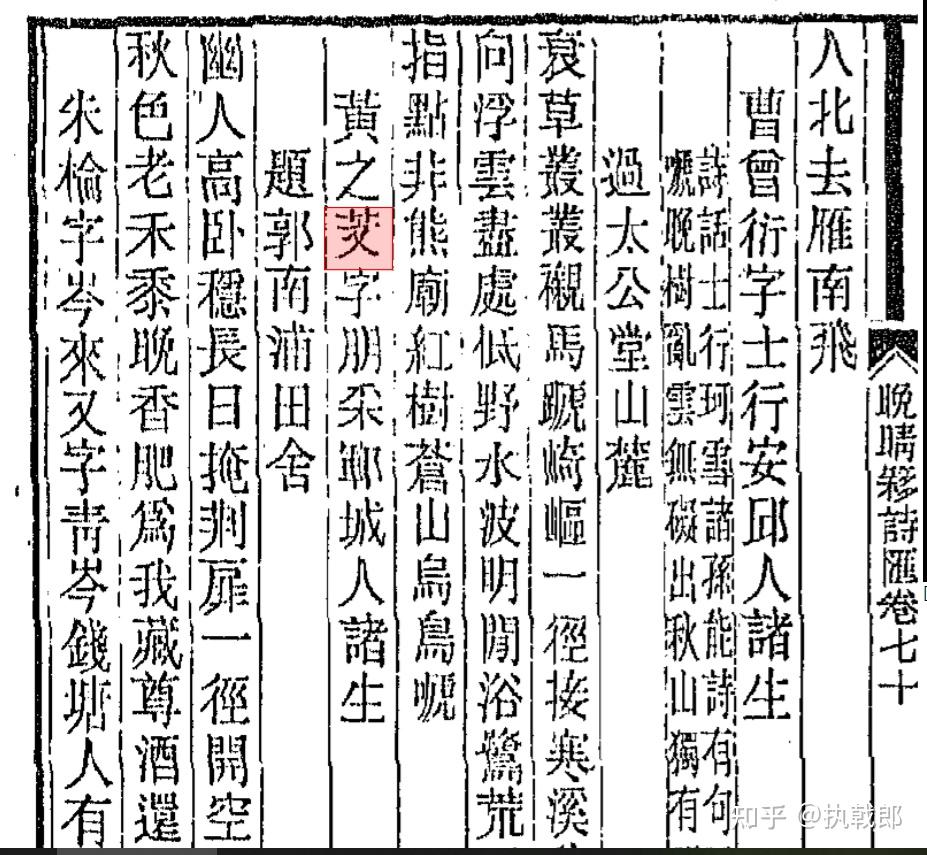 晚晴簃詩匯卷七十
人北去雁南飛
曹曾衍字士行安邱人諸生
詩話士行珂雪諸孫能詩有句
嗁晚樹亂雲無礙出秋山獨有
過太公堂山麓
衰草叢叢襯馬蹏崎嶇一徑接寒溪
向浮雲盡處低野水波明閒浴鷺荒
指點非熊廟紅樹蒼山烏鳥嗁
黃之字朋采鄆城人諸生
題郭南浦田舍
幽人高臥穩長日掩荊扉一徑開空
秋色老禾黍晚香肥爲我藏尊酒還
朱棆字岑來又字靑岑錢塘人有
知乎 @执戟郎